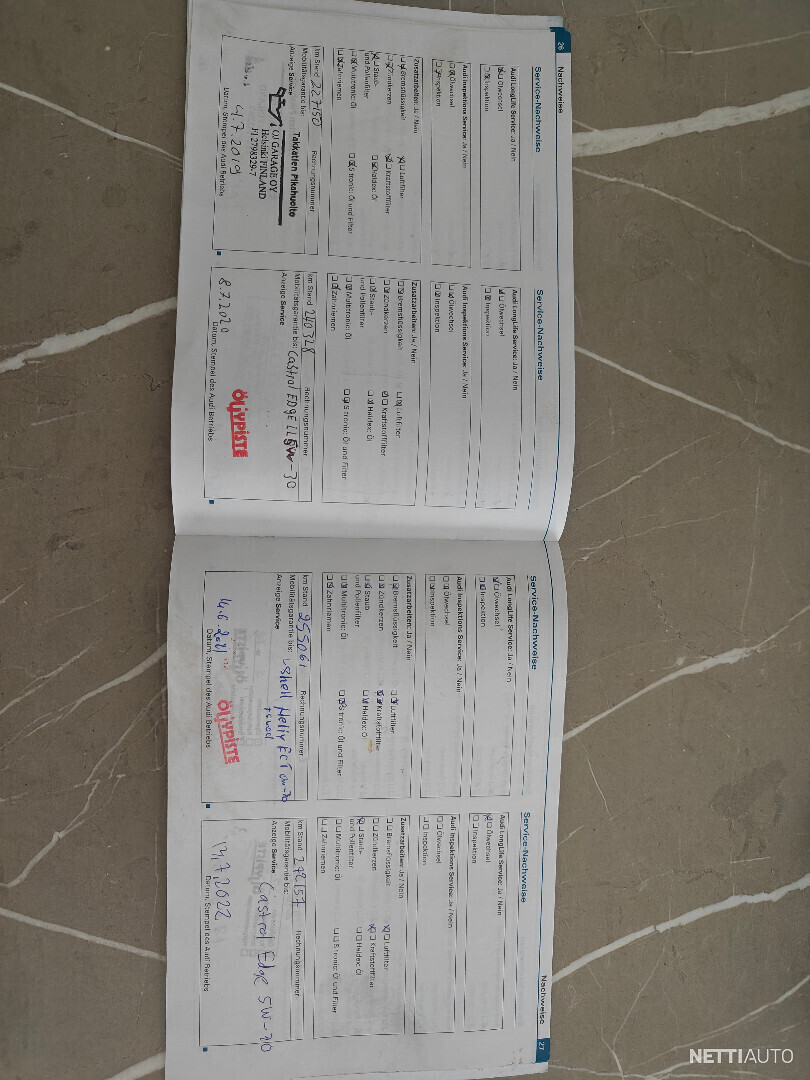 26
Nachweise
Service-Nachweise
Audi LongLife Service: Ja / Nein
Ölwechsel
Inspektion
Audi Inspektions Service: Ja / Nein
Ölwechsel
Inspektion
Zusatzarbeiten: Ja / Nein
Bremsflüssigkeit
Luftfilter
Zündkerzen
Kraftstofffilter
Staub-
und Pollenfilter
Haldex: Öl
Multitronic: Öl
S tronic: Öl und Filter
Zahnriemen
km Stand 227150
Rechnungsnummer
Mobilitätsgarantie bis:
Anzeige Service
Takkatien Pikahuolto
OJ GARAGE OY
Helsinki FINLAND
FI 2798329-7
4.7.2019
Datum, Stempel des Audi Betriebs
Service-Nachweise
Audi LongLife Service: Ja / Nein
Ölwechsel
Inspektion
Audi Inspektions Service: Ja / Nein
Ölwechsel
Inspektion
Zusatzarbeiten: Ja / Nein
Bremsflüssigkeit
Luftfilter
Zündkerzen
Kraftstofffilter
Staub-
und Pollenfilter
Haldex: Öl
Multitronic: Öl
S tronic: Öl und Filter
Zahnriemen
km Stand 240328
Rechnungsnummer
Mobilitätsgarantie bis: Castrol EDGE LL 5W-30
Anzeige Service
ÖLJYPISTE
8.7.2020
Datum, Stempel des Audi Betriebs
Service-Nachweise
Audi LongLife Service: Ja / Nein
Ölwechsel
Inspektion
Audi Inspektions Service: Ja / Nein
Ölwechsel
Inspektion
Zusatzarbeiten: Ja / Nein
Bremsflüssigkeit
Luftfilter
Zündkerzen
Kraftstofffilter
Staub-
und Pollenfilter
Haldex: Öl
Multitronic: Öl
S tronic: Öl und Filter
Zahnriemen
km Stand 255061
Rechnungsnummer
Mobilitätsgarantie bis: Shell Helix ECT
Anzeige Service
ÖLJYPISTE
14.6.2021
Datum, Stempel des Audi Betriebs
Nachweise
27
Service-Nachweise
Audi LongLife Service: Ja / Nein
Ölwechsel
Inspektion
Audi Inspektions Service: Ja / Nein
Ölwechsel
Inspektion
Zusatzarbeiten: Ja / Nein
Bremsflüssigkeit
Luftfilter
Zündkerzen
Kraftstofffilter
Staub-
und Pollenfilter
Haldex: Öl
Multitronic: Öl
S tronic: Öl und Filter
Zahnriemen
km Stand 272157
Rechnungsnummer
Mobilitätsgarantie bis:
Anzeige Service
Castrol Edge 5W-30
Datum, Stempel des Audi Betriebs
NETTIAUTO